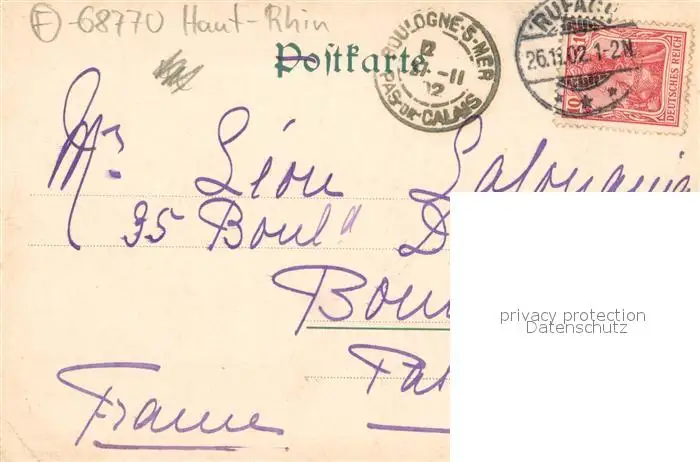 F -68770 Haut-Rhin
Postkarte
BOULOGNE-S-MER
PAS-DE-CALAIS
RUFAC
26.11.02. 1-2N
DEUTSCHES REICH
10
Mr. Léon
35 Boul d D
Bou
Pa
France
privacy protection
Datenschutz